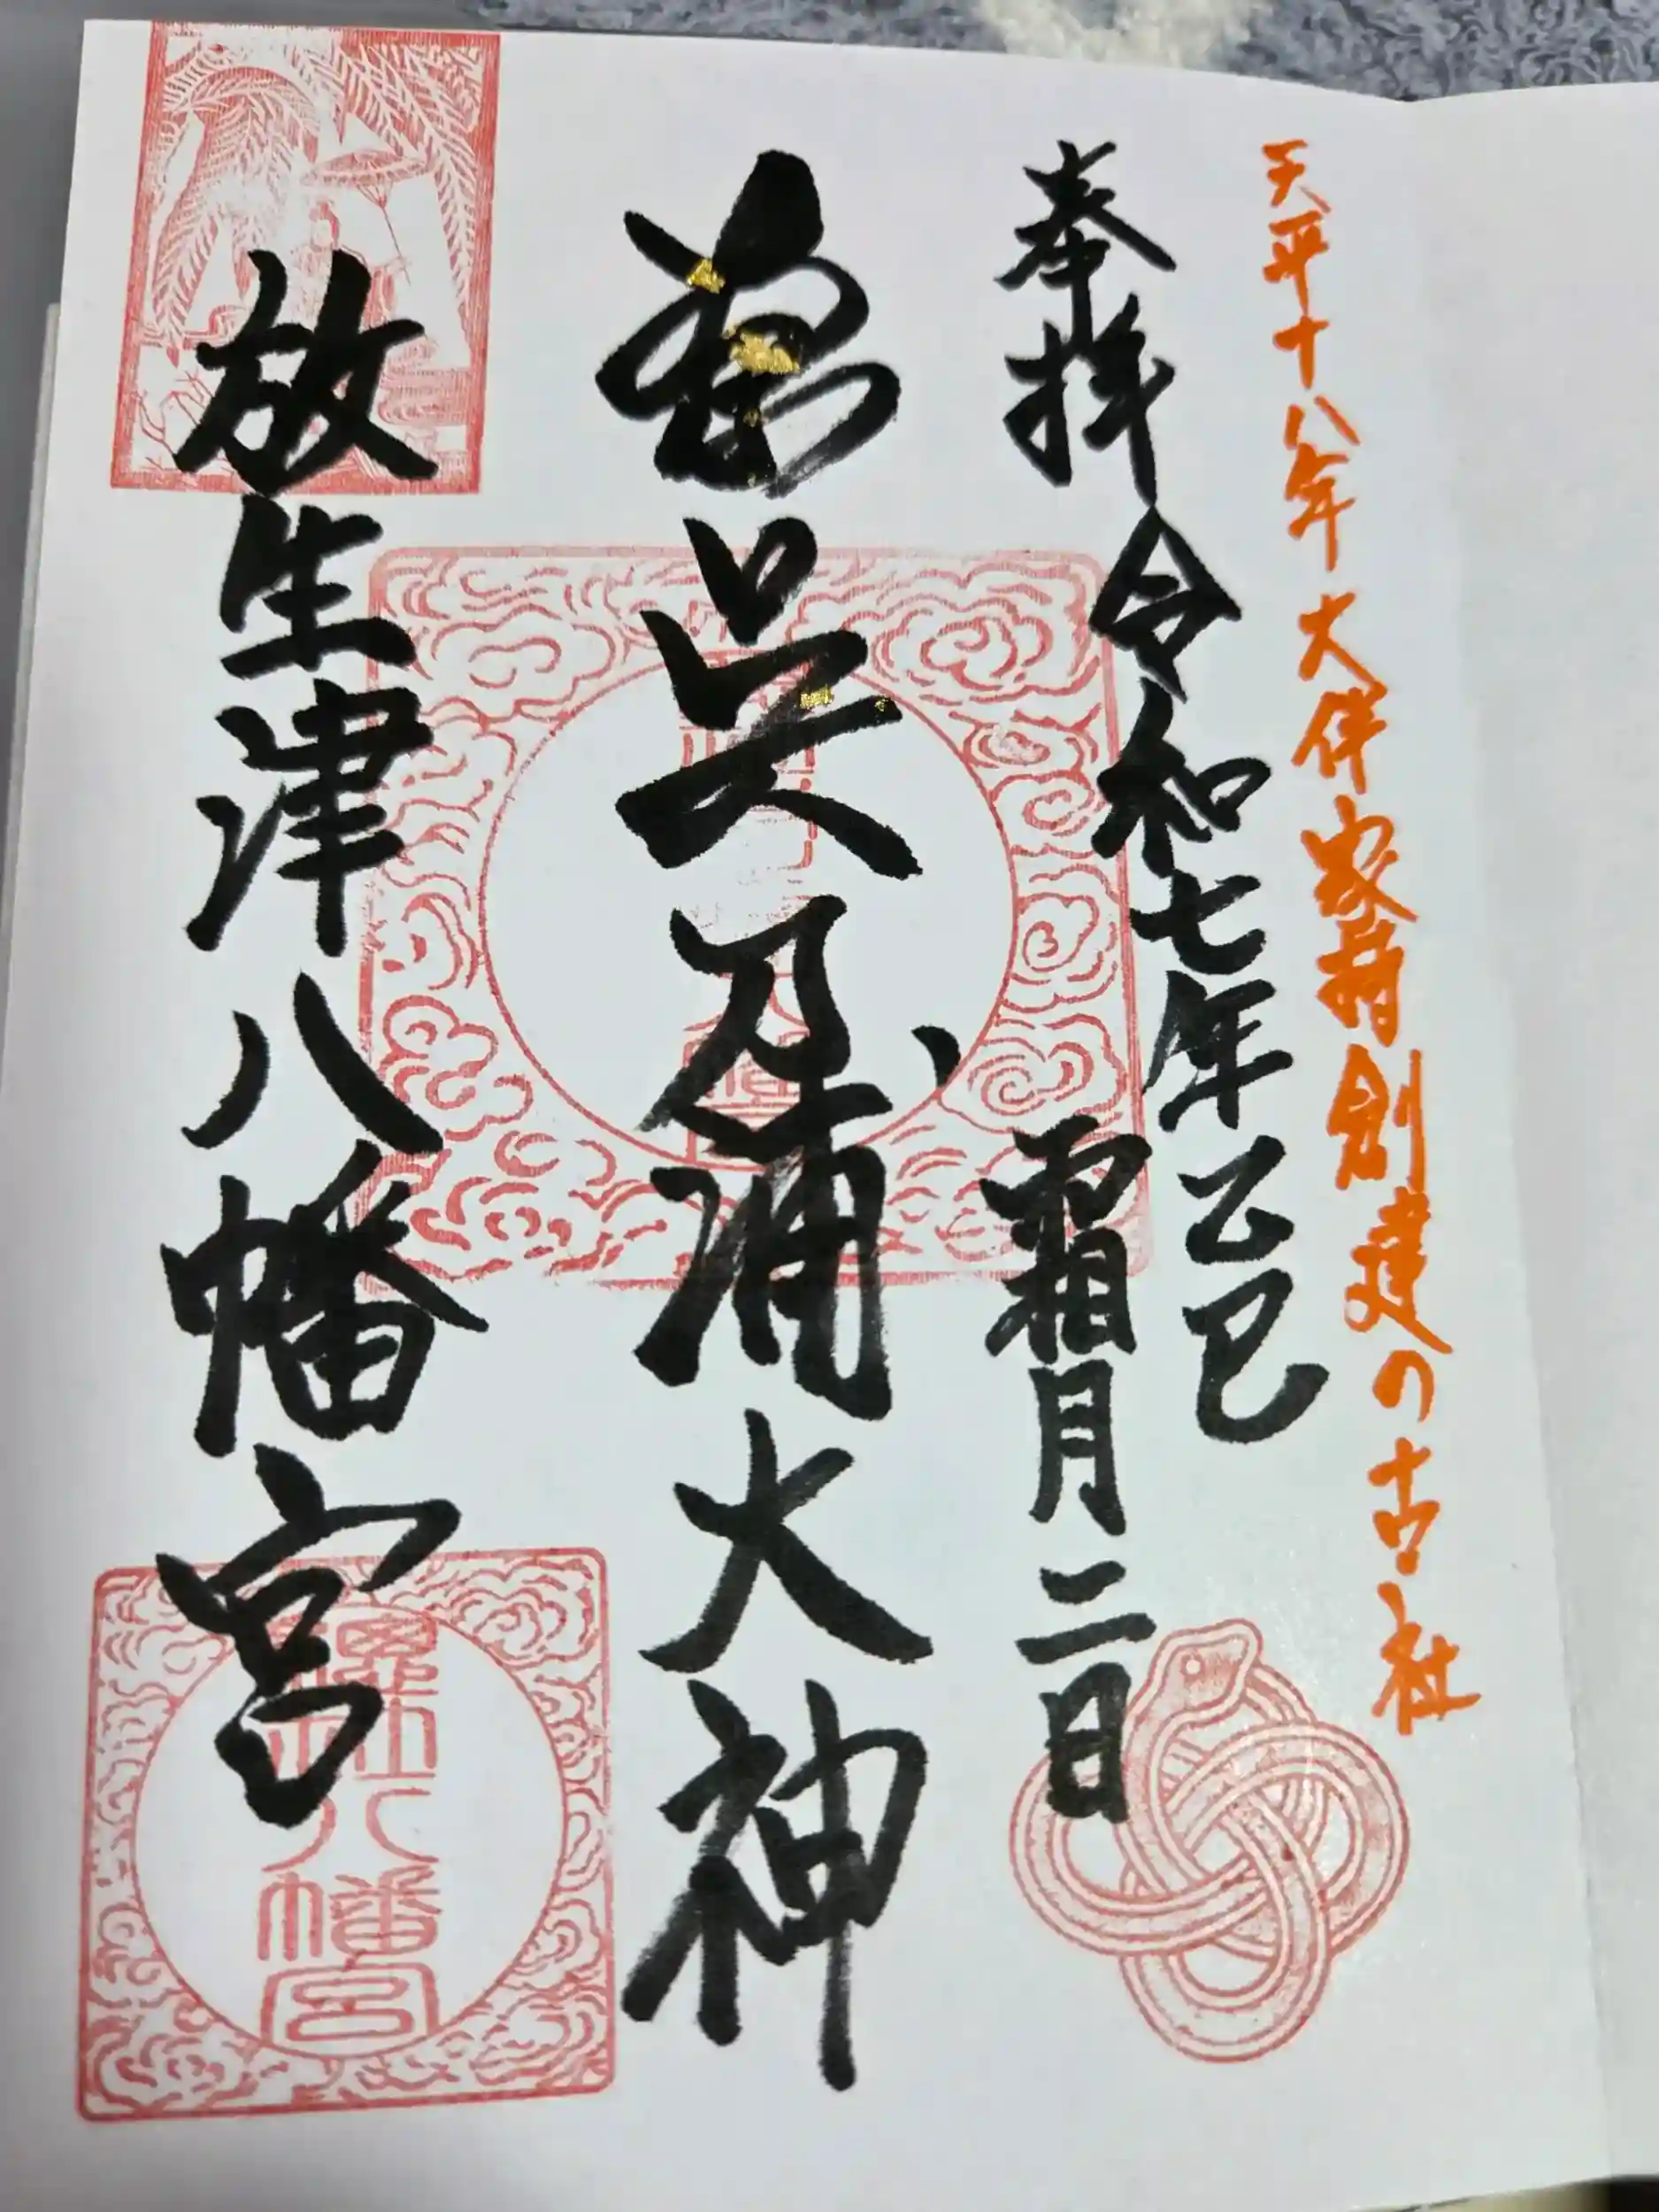 天平十八年 大伴家持創建の古社
奉拝 令和七年乙巳
霜月二日
奈呉乃浦大神
放生津八幡宮
八幡宮